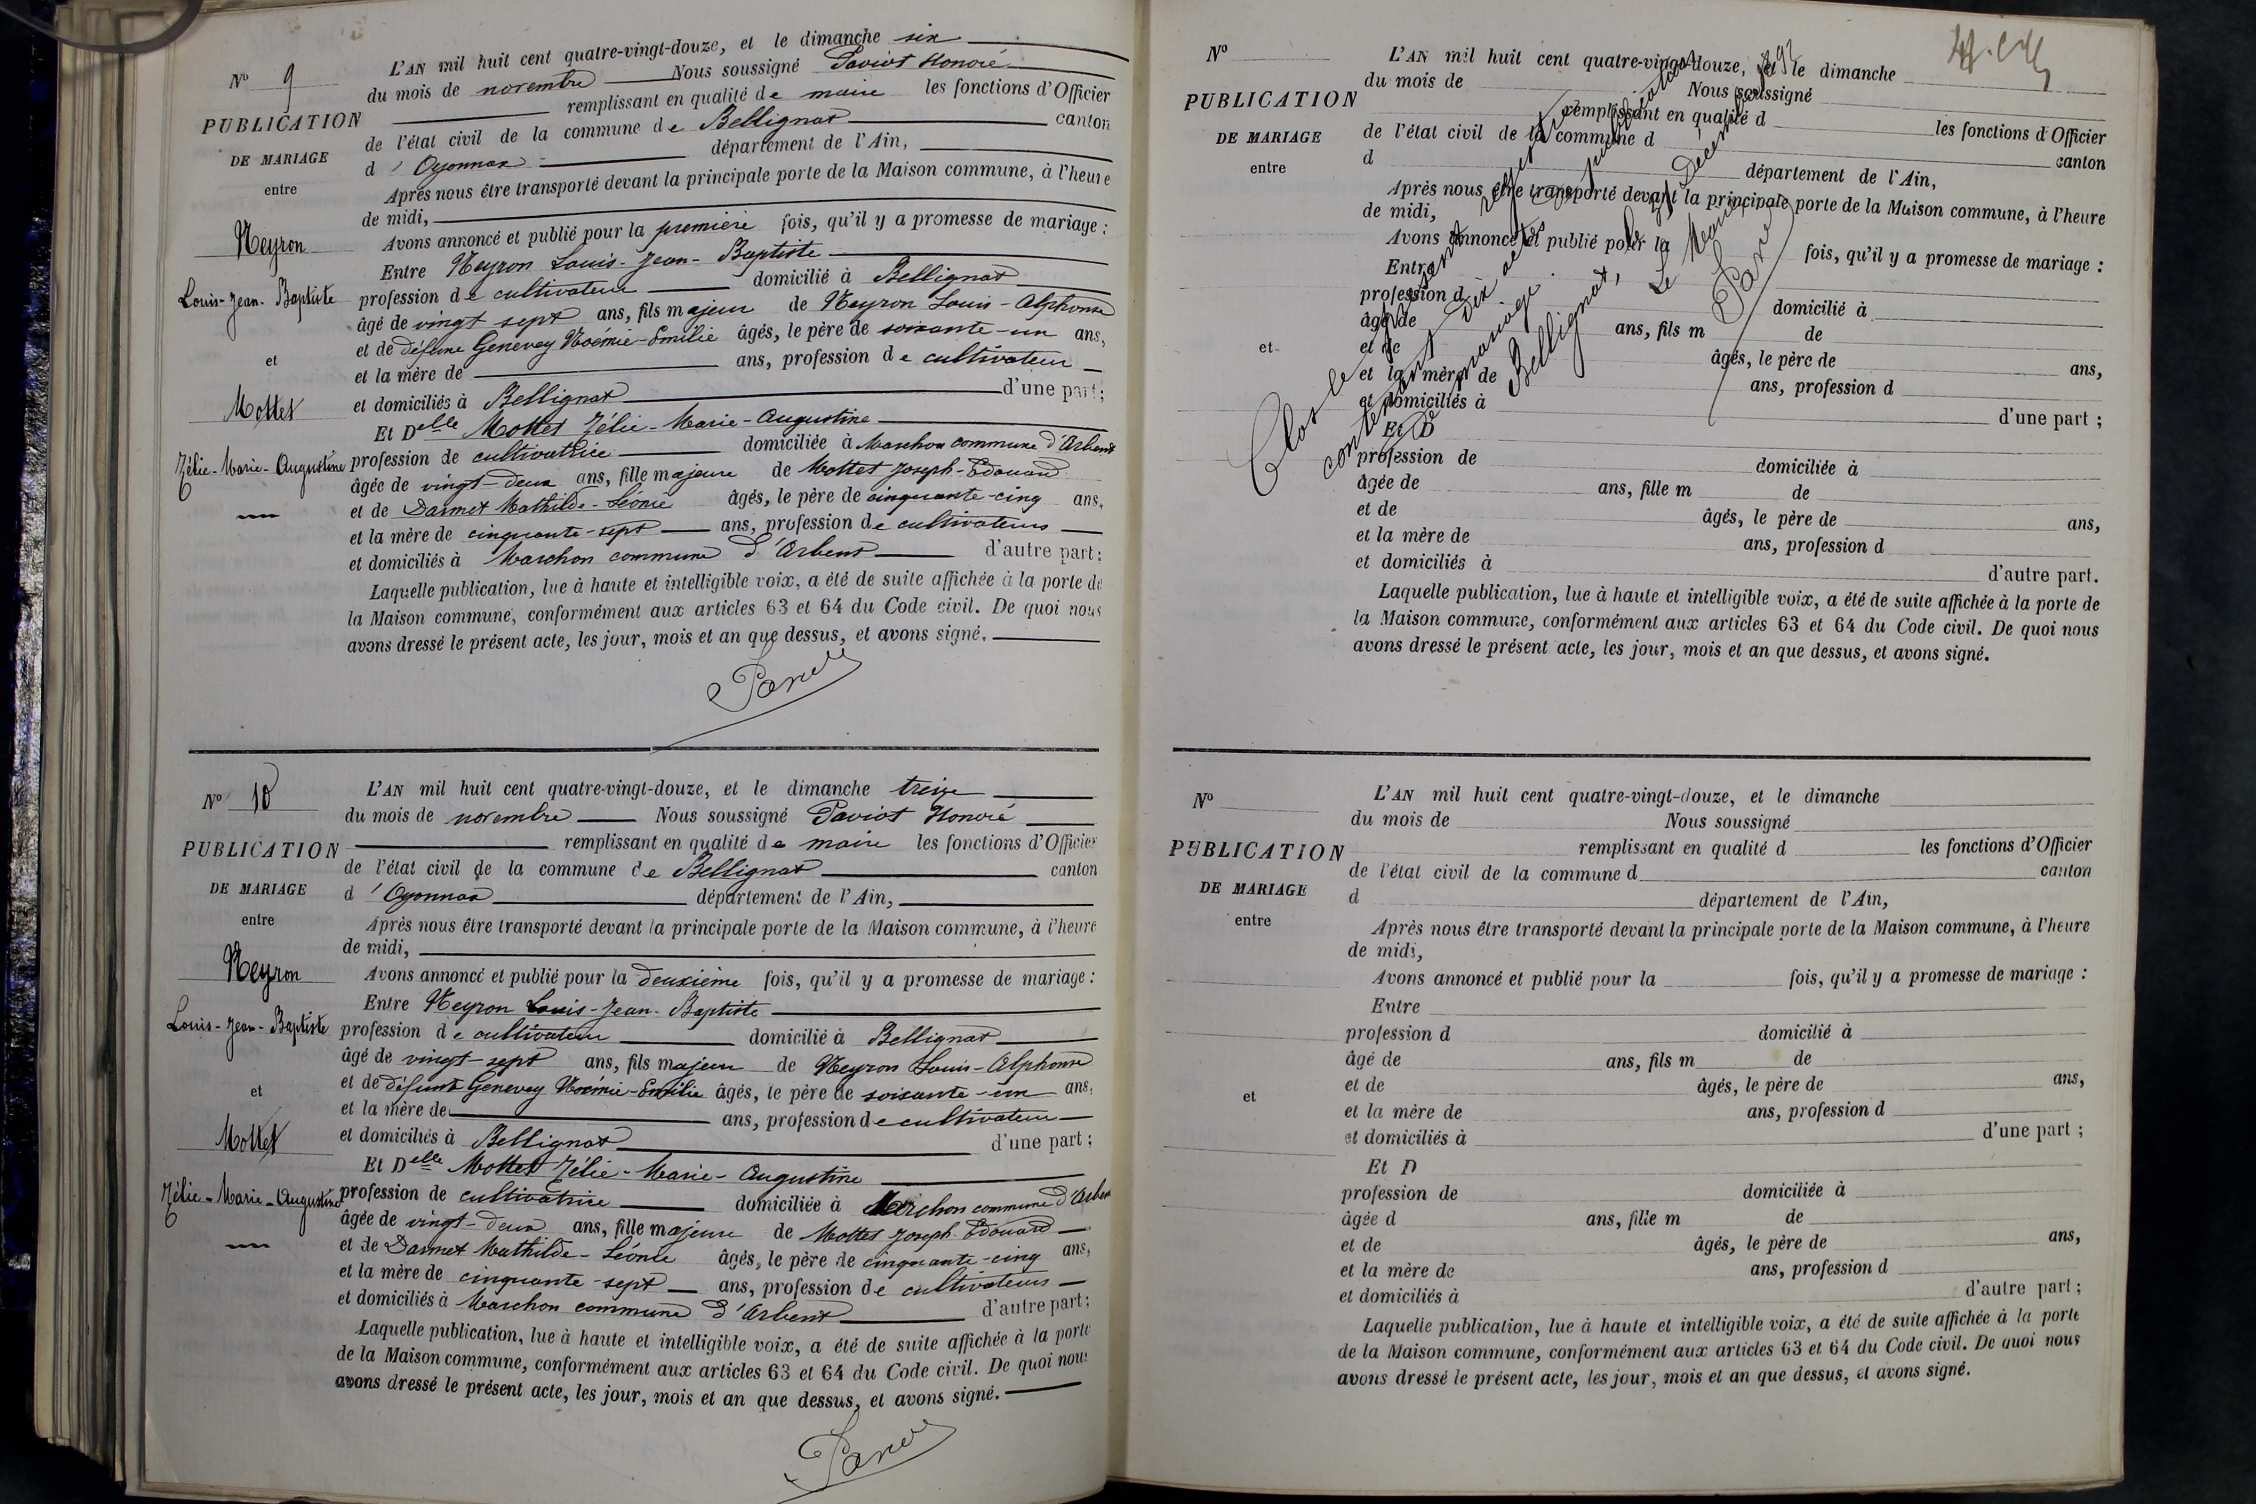 N° 9
PUBLICATION
DE MARIAGE
entre
Neyron
Louis-Jean-Baptiste
et
Mottet
Zélie-Marie-Augustine
L'AN mil huit cent quatre-vingt-douze, et le dimanche six
du mois de novembre Nous soussigné Paviot Honoré
remplissant en qualité de maire les fonctions d'Officier
de l'état civil de la commune de Bellignat canton
d'Oyonnax département de l'Ain,
Après nous être transporté devant la principale porte de la Maison commune, à l'heure
de midi,
Avons annoncé et publié pour la première fois, qu'il y a promesse de mariage :
Entre Neyron Louis-Jean-Baptiste
profession de cultivateur domicilié à Bellignat
âgé de vingt sept ans, fils majeur de Neyron Louis-Alphonse
et de défunte Genevey Noémie-Emilie âgés, le père de soixante-un ans,
et la mère de ans, profession de cultivateur
et domiciliés à Bellignat d'une part ;
Et Delle Mottet Zélie-Marie-Augustine
profession de cultivatrice domiciliée à Marchon commune d'Arbent
âgée de vingt-deux ans, fille majeure de Mottet Joseph-Edouard
et de Darmet Mathilde-Léonie âgés, le père de cinquante-cinq ans,
et la mère de cinquante-sept ans, profession de cultivateurs
et domiciliés à Marchon commune d'Arbent d'autre part ;
Laquelle publication, lue à haute et intelligible voix, a été de suite affichée à la porte de
la Maison commune, conformément aux articles 63 et 64 du Code civil. De quoi nous
avons dressé le présent acte, les jour, mois et an que dessus, et avons signé.
N° 10
PUBLICATION
DE MARIAGE
entre
Neyron
Louis-Jean-Baptiste
et
Mottet
Zélie-Marie-Augustine
L'AN mil huit cent quatre-vingt-douze, et le dimanche treize
du mois de novembre Nous soussigné Paviot Honoré
remplissant en qualité de maire les fonctions d'Officier
de l'état civil de la commune de Bellignat canton
d'Oyonnax département de l'Ain,
Après nous être transporté devant la principale porte de la Maison commune, à l'heure
de midi,
Avons annoncé et publié pour la deuxième fois, qu'il y a promesse de mariage :
Entre Neyron Louis-Jean-Baptiste
profession de cultivateur domicilié à Bellignat
âgé de vingt-sept ans, fils majeur de Neyron Louis-Alphonse
et de défunte Genevey Noémie-Emilie âgés, le père de soixante-un ans,
et la mère de ans, profession de cultivateur
et domiciliés à Bellignat d'une part ;
Et Delle Mottet Zélie-Marie-Augustine
profession de cultivatrice domiciliée à Marchon commune d'Arbent
âgée de vingt-deux ans, fille majeure de Mottet Joseph-Edouard
et de Darmet Mathilde-Léonie âgés, le père de cinquante-cinq ans,
et la mère de cinquante-sept ans, profession de cultivateurs
et domiciliés à Marchon commune d'Arbent d'autre part ;
Laquelle publication, lue à haute et intelligible voix, a été de suite affichée à la porte
de la Maison commune, conformément aux articles 63 et 64 du Code civil. De quoi nous
avons dressé le présent acte, les jour, mois et an que dessus, et avons signé.
N°
PUBLICATION
DE MARIAGE
entre
et
L'AN mil huit cent quatre-vingt-douze, et le dimanche
du mois de Nous soussigné
remplissant en qualité d les fonctions d'Officier
de l'état civil de la commune d canton
d département de l'Ain,
Après nous être transporté devant la principale porte de la Maison commune, à l'heure
de midi,
Avons annoncé et publié pour la fois, qu'il y a promesse de mariage :
Entre
profession d domicilié à
âgé de ans, fils m de
et de âgés, le père de ans,
et la mère de ans, profession d
et domiciliés à d'une part ;
Et D
profession de domiciliée à
âgée de ans, fille m de
et de âgés, le père de ans,
et la mère de ans, profession d
et domiciliés à d'autre part.
Laquelle publication, lue à haute et intelligible voix, a été de suite affichée à la porte de
la Maison commune, conformément aux articles 63 et 64 du Code civil. De quoi nous
avons dressé le présent acte, les jour, mois et an que dessus, et avons signé.
Clos le présent registre
contenant dix actes de publication
de mariage.
Bellignat, le 31 Décembre 1892
Le Maire
N°
PUBLICATION
DE MARIAGE
entre
et
L'AN mil huit cent quatre-vingt-douze, et le dimanche
du mois de Nous soussigné
remplissant en qualité d les fonctions d'Officier
de l'état civil de la commune d canton
d département de l'Ain,
Après nous être transporté devant la principale porte de la Maison commune, à l'heure
de midi,
Avons annoncé et publié pour la fois, qu'il y a promesse de mariage :
Entre
profession d domicilié à
âgé de ans, fils m de
et de âgés, le père de ans,
et la mère de ans, profession d
et domiciliés à d'une part ;
Et D
profession de domiciliée à
âgée d ans, fille m de
et de âgés, le père de ans,
et la mère de ans, profession d
et domiciliés à d'autre part ;
Laquelle publication, lue à haute et intelligible voix, a été de suite affichée à la porte
de la Maison commune, conformément aux articles 63 et 64 du Code civil. De quoi nous
avons dressé le présent acte, les jour, mois et an que dessus, et avons signé.